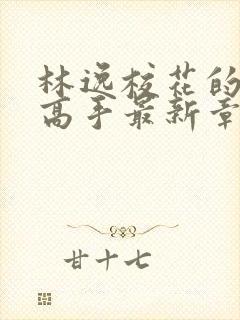 林逸校花的
高手最新章
甘十七